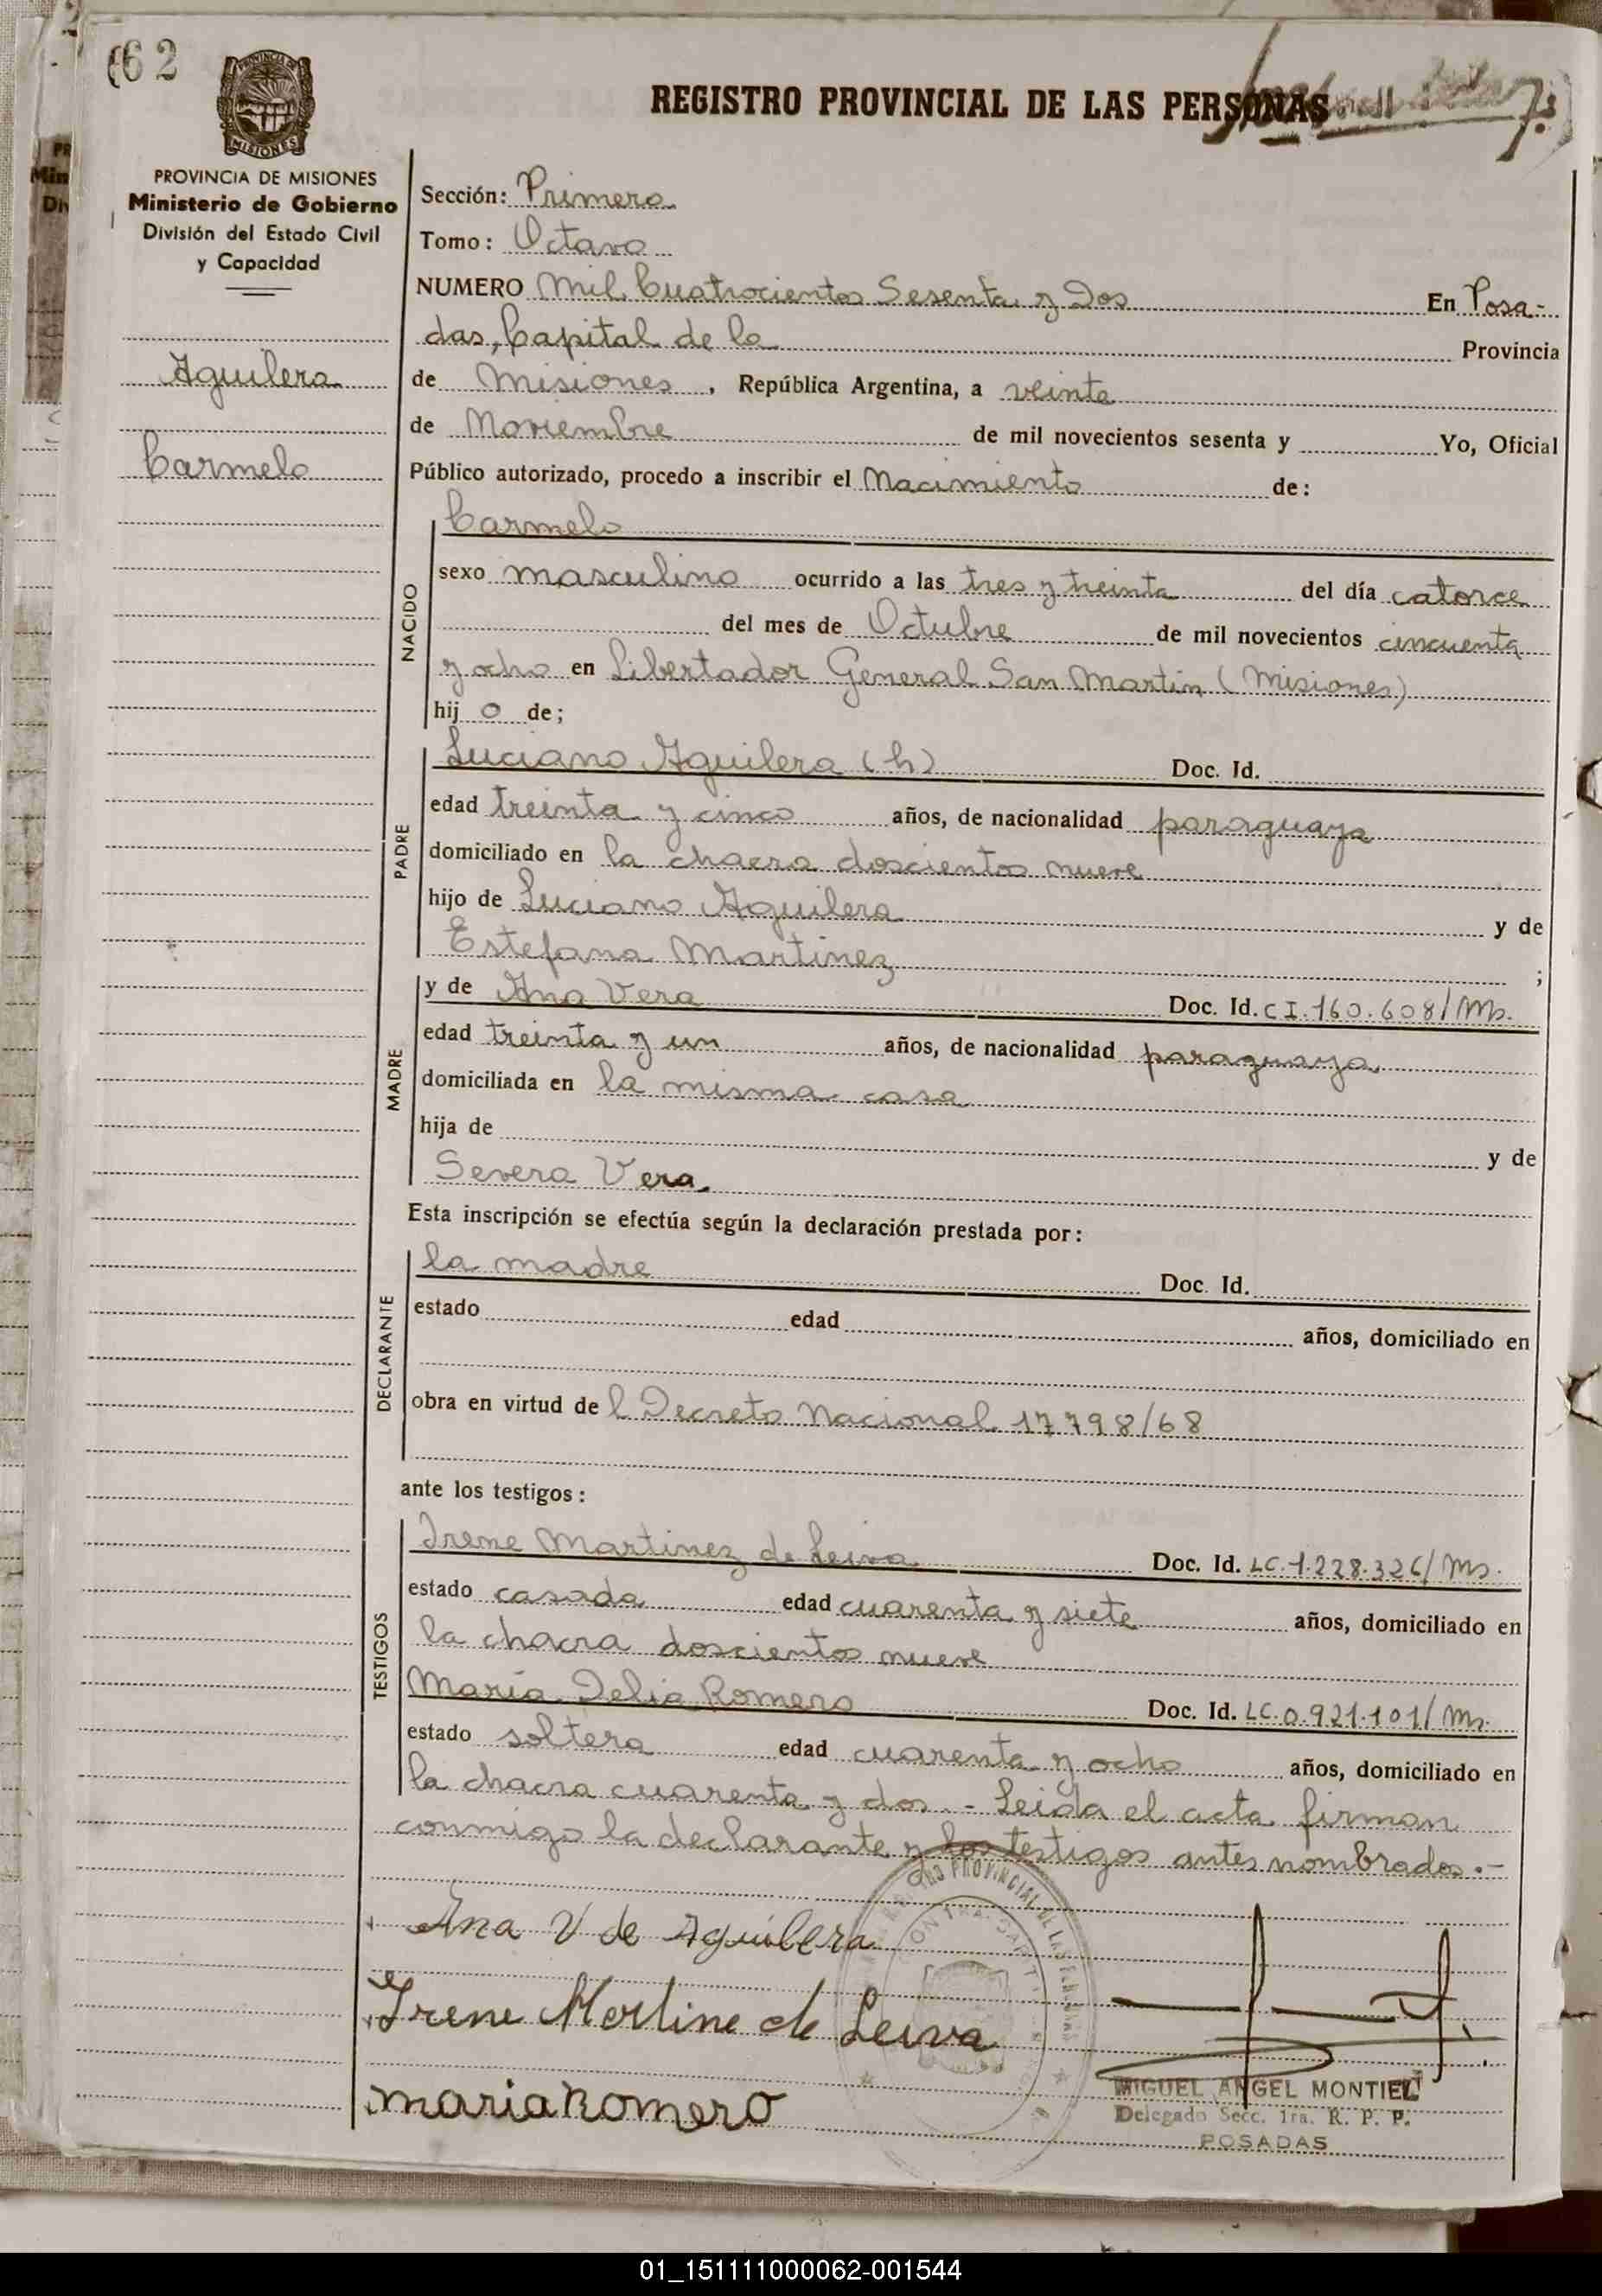 62
PROVINCIA DE
MISIONES
REGISTRO PROVINCIAL DE LAS PERSONAS
PROVINCIA DE MISIONES
Ministerio de Gobierno
División del Estado Civil
y Capacidad
Aguilera
Carmelo
Sección: Primera
Tomo: Octavo
NUMERO Mil Cuatrocientos Sesenta y Dos En Posa-
das, Capital de la Provincia
de Misiones, República Argentina, a veinte
de Noviembre de mil novecientos sesenta y Yo, Oficial
Público autorizado, procedo a inscribir el Nacimiento de:
NACIDO
Carmelo
sexo masculino ocurrido a las tres y treinta del día catorce
del mes de Octubre de mil novecientos cincuenta
y ocho en Libertador General San Martin (Misiones)
hij o de;
PADRE
Luciano Aguilera (h) Doc. Id.
edad treinta y cinco años, de nacionalidad paraguaya
domiciliado en la chacra doscientos nueve
hijo de Luciano Aguilera y de
Estefana Martinez ;
MADRE
y de Ana Vera Doc. Id. C I. 160.608/Ms.
edad treinta y un años, de nacionalidad paraguaya
domiciliada en la misma casa
hija de y de
Severa Vera.
Esta inscripción se efectúa según la declaración prestada por:
DECLARANTE
la madre Doc. Id.
estado edad años, domiciliado en
obra en virtud de l Decreto Nacional 17798/68
ante los testigos:
TESTIGOS
Irene Martinez de Leiva Doc. Id. LC. 1.228.326/Ms.
estado casada edad cuarenta y siete años, domiciliado en
la chacra doscientos nueve
María Delia Romero Doc. Id. LC. 0.921.101/Ms.
estado soltera edad cuarenta y ocho años, domiciliado en
la chacra cuarenta y dos.- Leida el acta firman
conmigo la declarante y los testigos antes nombrados.-
Ana V de Aguilera
Irene Mertine de Leiva
maria Romero
PROVINCIAL DE LAS
MIGUEL ANGEL MONTIEL
Delegado Secc. 1ra. R. P. P.
POSADAS
01_151111000062-001544